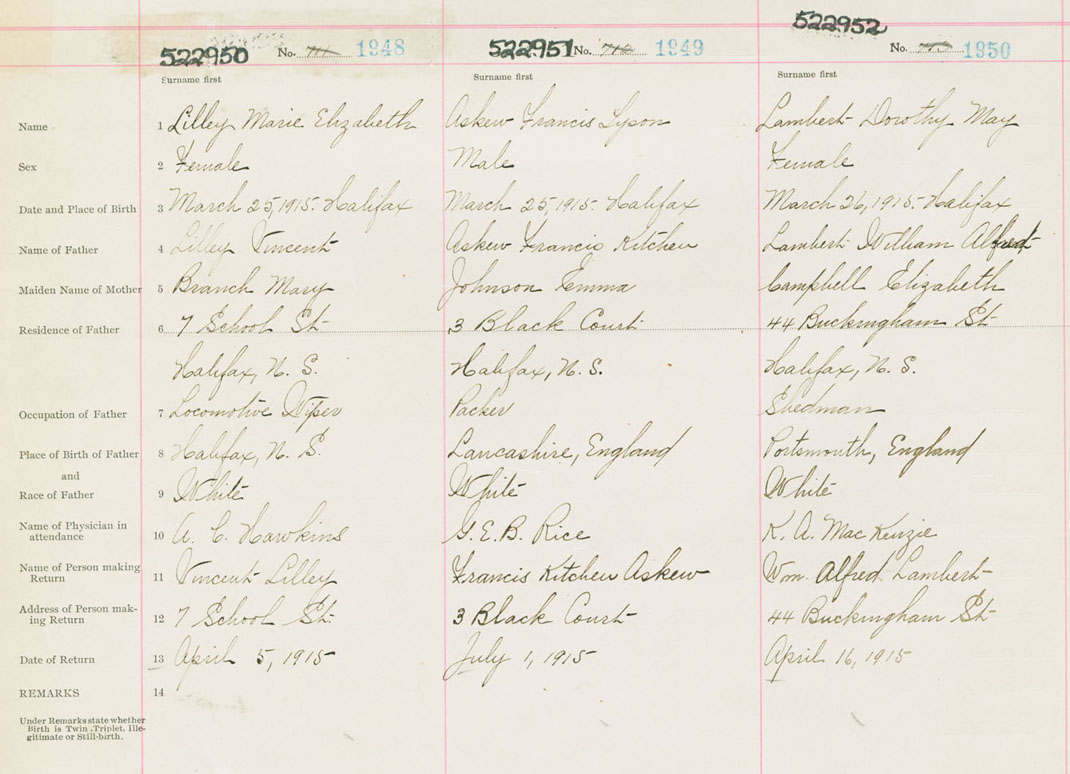 522950 No. 1948 522951 No. 1949 522952 No. 1950
Surname first Surname first Surname first
Name 1 Lilley Marie Elizabeth Askew Francis Lyson Lambert Dorothy May
Sex 2 Female Male Female
Date and Place of Birth 3 March 25, 1915. Halifax March 25, 1915. Halifax March 26, 1915. Halifax
Name of Father 4 Lilley Vincent Askew Francis Kitchen Lambert William Alfred
Maiden Name of Mother 5 Branch Mary Johnson Emma Campbell Elizabeth
Residence of Father 6 7 School St. 3 Black Court 44 Buckingham St
Halifax, N. S. Halifax, N. S. Halifax, N. S.
Occupation of Father 7 Locomotive Wiper Packer Shedman
Place of Birth of Father 8 Halifax, N. S. Lancashire, England Portsmouth, England
and
Race of Father 9 White White White
Name of Physician in
attendance 10 A. C. Hawkins G. E. B. Rice K. A. MacKenzie
Name of Person making
Return 11 Vincent Lilley Francis Kitchen Askew Wm. Alfred Lambert
Address of Person mak-
ing Return 12 7 School St. 3 Black Court 44 Buckingham St
Date of Return 13 April 5, 1915 July 1, 1915 April 16, 1915
REMARKS 14
Under Remarks state whether
Birth is Twin, Triplet, Ille-
gitimate or Still-birth.